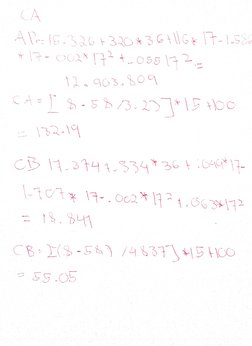 CA
AM=15.326+320*36+116*17-1.536
*17-.002*17²+.05517²=
12.903.809
CA=[8-58/3.23]*15+100
=132.19
CB 17.374+.334*36+.099*17-
1.707*17-.002*17²+.063*17²
=18.847
CB=[(8-58)/4837]*15+100
=55.05